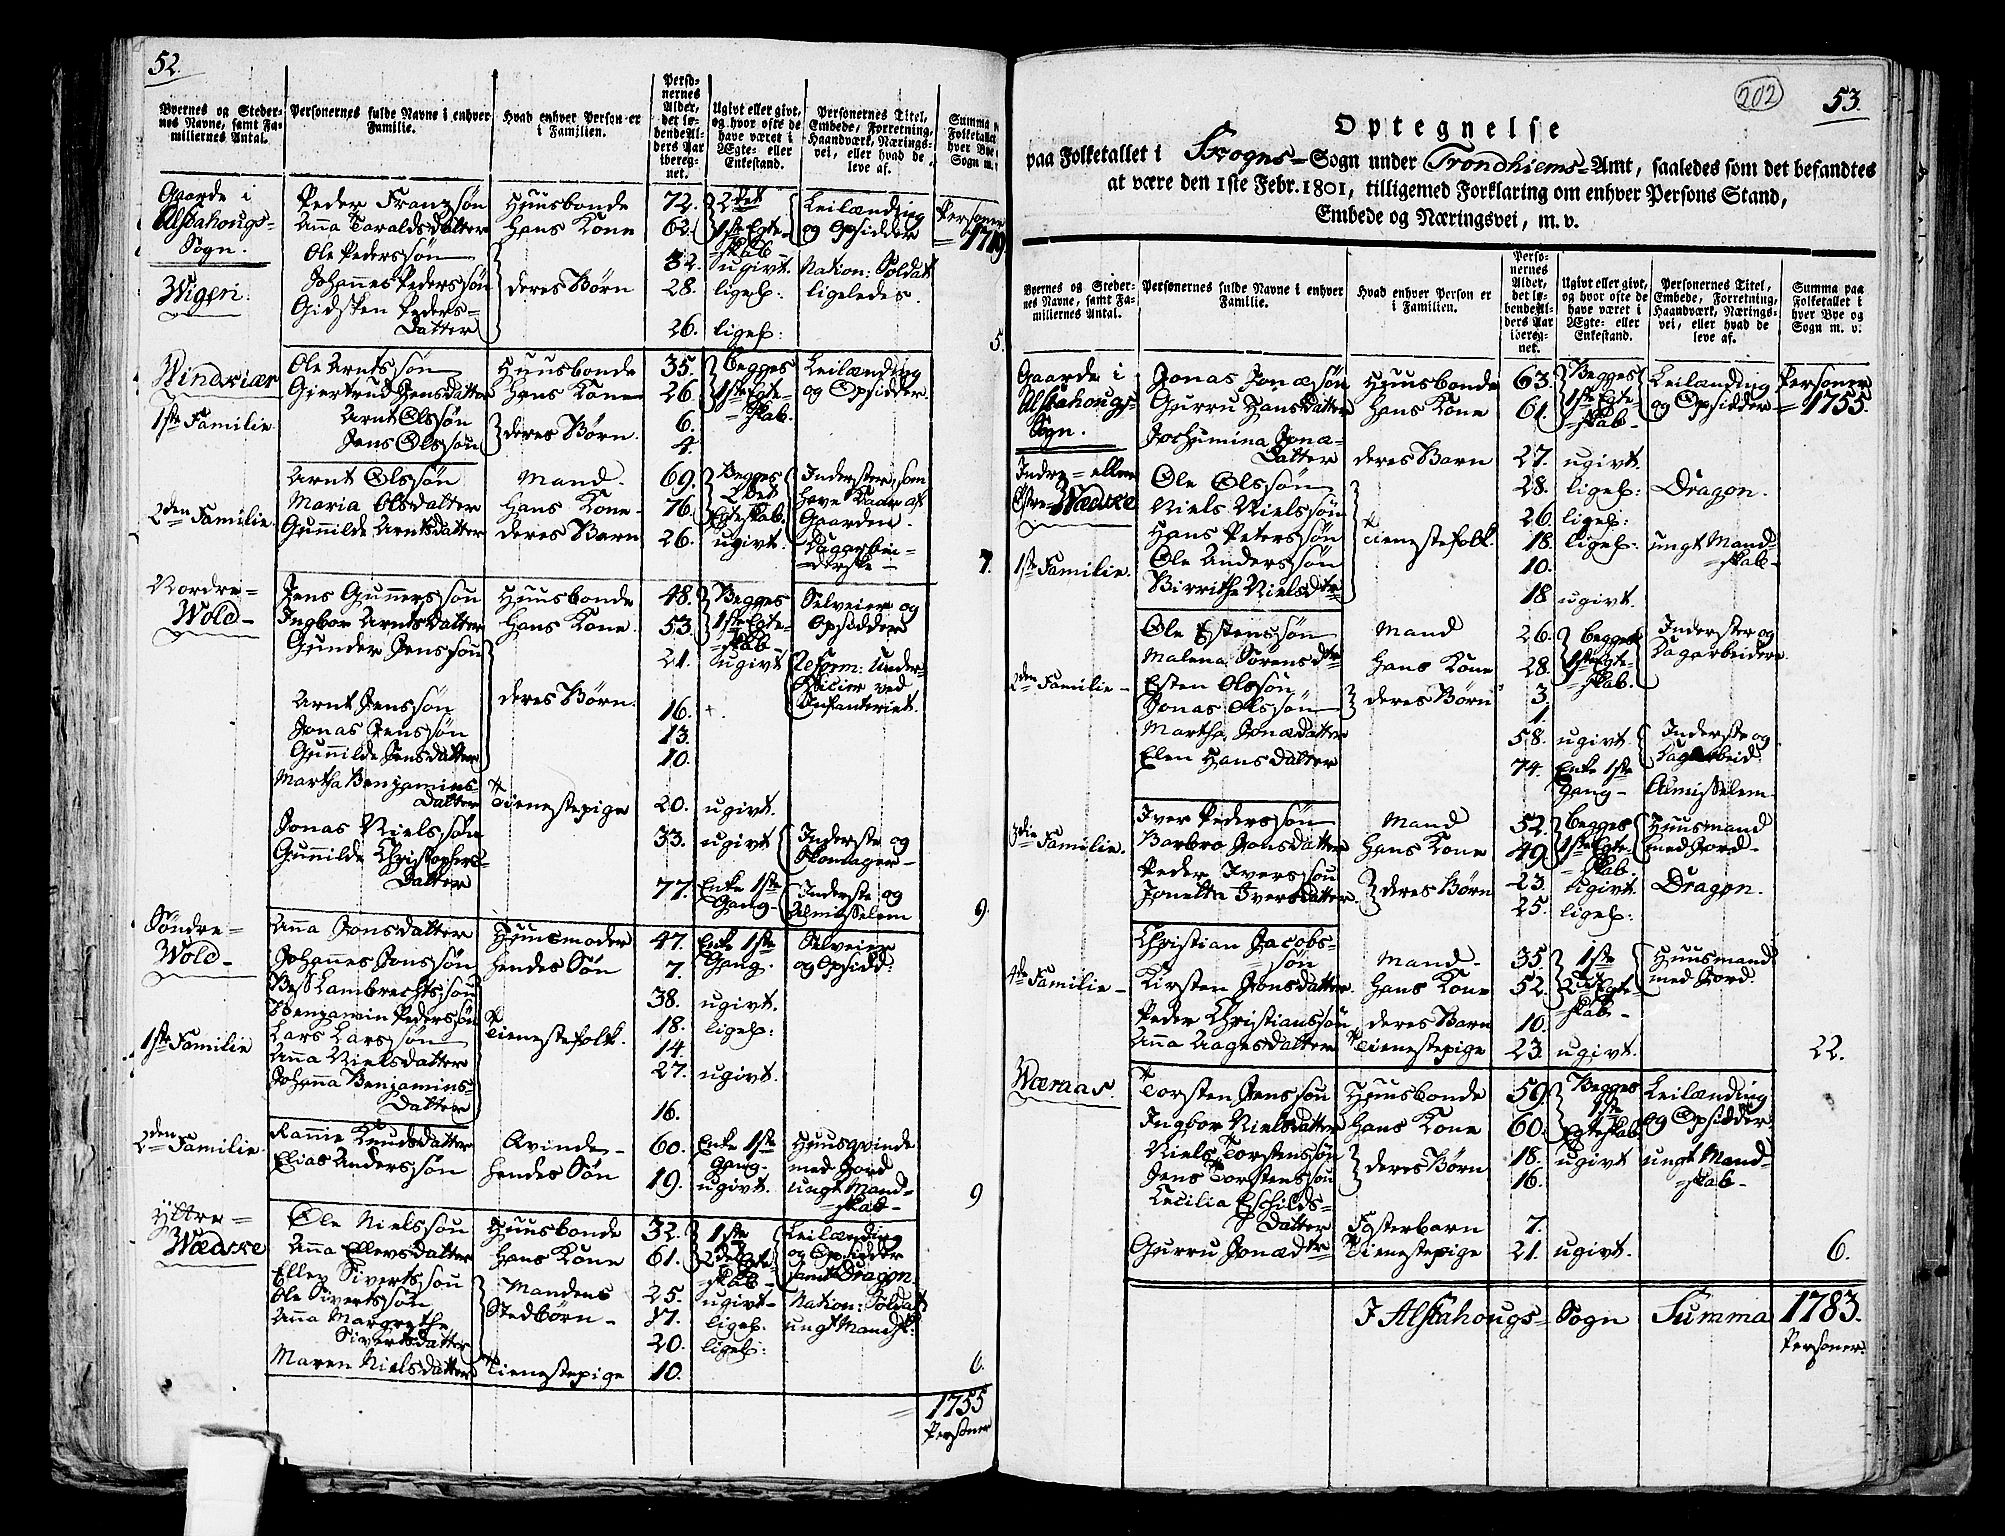 52.
Byernes og Steder-
nes Navne, samt Fa-
miliernes Antal.
Personernes fulde Navne i enhver
Familie.
Hvad enhver Person er
i Familien.
Perso-
nernes
Alder,
det lø-
bende Al-
ders Aar
ibereg-
net.
Ugivt eller givt,
og hvor ofte de
have været i
Ægte- eller
Enkestand.
Personernes Titel,
Embede, Forretning,
Haandværk, Nærings-
vei, eller hvad de
leve af.
Summa
Folketallet
hver Bye
Sogn m.
Gaarde i
Alstahougs-
Sogn.
Personer
= 1719
Wigen:
Peder Franzsøn Huusbonde 72. 2det Leilænding
Anna Taraldsdatter Hans Kone 62. 1ste Egte- og Opsidder
=skab
Ole Pederssøn 32. ugivt. Nation: Soldat
Johannes Pederssøn deres Børn 28. ligel: ligeledes.
Gidsken Peders=
Datter 26. ligel:
5.
Windsiær
1ste Familie
Ole Arntssøn Huusbonde 35. begges Leilænding
Giertrud Jensdatter Hans Kone 26. 1ste Egte- og Opsidder
Arnt Olssøn deres Børn. 6. =skab.
Jens Olssøn 4.
2den Familie.
Arnt Olssøn Mand. 69. Begges Inderster, som
Maria Olsdatter Hans Kone 76. 2det have Kaar af
Egteskab. Gaarden.
Gunnilde Arntsdatter deres Barn 26. ugivt. Dagarbei-
=derske
7.
Nordre=
Wold-
Jens Gunnerssøn Huusbonde 48. Begges Selveier og
Ingbor Arntsdatter Hans Kone. 53. 1ste Egte- Opsidder
=skab
Gunder Jenssøn 21. ugivt Reform: Under
officier ved
Infanteriet.
Arnt Jenssøn deres Børn. 16.
Jonas Jenssøn 13.
Gunnilde Jensdatter 10.
Martha Benjamins
Datter Tienestepige 20. ugivt.
Jonas Nielssøn 33. ugivt Inderste og
Skomager
Gunnilde Christophers-
Datter 77. Enke 1ste Inderste og
Gang- Almisselem
9.
Søndre=
Wold-
1ste Familie
Anna Jonsdatter Huusmoder 47. Enke 1ste Selveier
Johannes Jonssøn Hendes Søn 7. Gang. og Opsidd:
Lambrechtssøn 38. ugivt.
Benjamin Pederssøn 18. ligel:
Lars Larssøn Tienestefolk. 14.
Anna Nielsdatter 27. ugivt.
Johanna Benjamins=
Datter 16.
2den Familie.
Rannie Knudsdatter Qvinde- 60. Enke 1ste Huusqvinde
Gang. med Jord
Elias Anderssøn Hendes Søn 19. ugivt. ungt Mand-
=skab-
9
Yttre=
Wædske
Ole Nielssøn Huusbonde 32. 1ste Leilænding
Anna Ellevsdatter Hans Kone 61. 2det Egte- og Opsidder
=skab samt Dragon.
Ellev Sivertssøn Mandens 25. ugivt- Nation: Soldat
Ole Sivertssøn Stedbørn- 17. ligel: ungt Mandsk:
Anna Margrethe
Sivertsdatter 20. ligel:
Maren Nielsdatter Tienestepige 10.
6.
1755
Personer
202
53.
Optegnelse
paa Folketallet i Skogns-Sogn under Trondhiems-Amt, saaledes som det befandtes
at være den 1ste Febr. 1801, tilligemed Forklaring om enhver Persons Stand,
Embede og Næringsvei, m. v.
Byernes og Steder-
nes Navne, samt Fa-
miliernes Antal.
Personernes fulde Navne i enhver
Familie.
Hvad enhver Person er
i Familien.
Perso-
nernes
Alder,
det lø-
bende Al-
ders Aar
ibereg-
net.
Ugivt eller givt,
og hvor ofte de
have været i
Ægte- eller
Enkestand.
Personernes Titel,
Embede, Forretning,
Haandværk, Nærings-
vei, eller hvad de
leve af.
Summa paa
Folketallet i
hver Bye og
Sogn m. v.
Gaarde i
Alstahougs-
Sogn.
Personer
= 1755.
Indre= eller
Østre-Wædske
1ste Familie.
Jonas Jonæsøn Huusbonde 63. Begges Leilænding
Gurru Hansdatter Hans Kone 61. 1ste Egte- og Opsidder
=skab-
Jochumina Jonæ=
Datter deres Barn 27. ugivt.
Ole Olssøn 28. ligel: Dragon.
Niels Nielssøn 26. ligel:
Hans Peterssøn Tienestefolk. 18. ligel: ungt Mand-
Ole Anderssøn 10. =skab-
Birrithe Nielsdtr 18 ugivt.
2den Familie-
Ole Estenssøn Mand 26. begges Inderster og
Malena Sørensdtr Hans Kone 28. 1ste Egte- Dagarbeidere.
=skab.
Esten Olssøn deres Børn 3.
Jonas Olssøn 1.
Martha Jonædatter 58. ugivt. Inderste og
Dagarbeid.
Elen Hansdatter 74. Enke 1ste Almisselem.
Gang-
3die Familie.
Iver Pederssøn Mand 52. begges Huusmand
Barbro Jonsdatter Hans Kone 49. 1ste Egte- med Jord-
=skab.
Peder Iverssøn deres Børn 23. ugivt. Dragon.
Jonetta Iversdatter. 25. ligel:
4de Familie-
Christian Jacobs-
søn Mand- 35. 1ste Huusmand
Kirsten Jonsdatter. Hans Kone 52. 2det Egte- med Jord.
=skab-
Peder Christianssøn deres Barn 10.
Anna Aagesdatter Tienestepige 23. ugivt.
22.
Wæraas.
Torsten Jenssøn Huusbonde 59. Begges Leilænding
Ingbor Nielsdatter Hans Kone 60. 1ste og Opsidder
Egteskab
Niels Torstenssøn deres Børn 18. ugivt ungt Mand-
Jens Torstenssøn 16. =skab-
Cecilia Eschilds-
Datter Fosterbarn 7.
Gurru Jonædtr Tienestepige 21. ugivt.
6.
I Alstahougs= Sogn Summa 1783.
Personer.